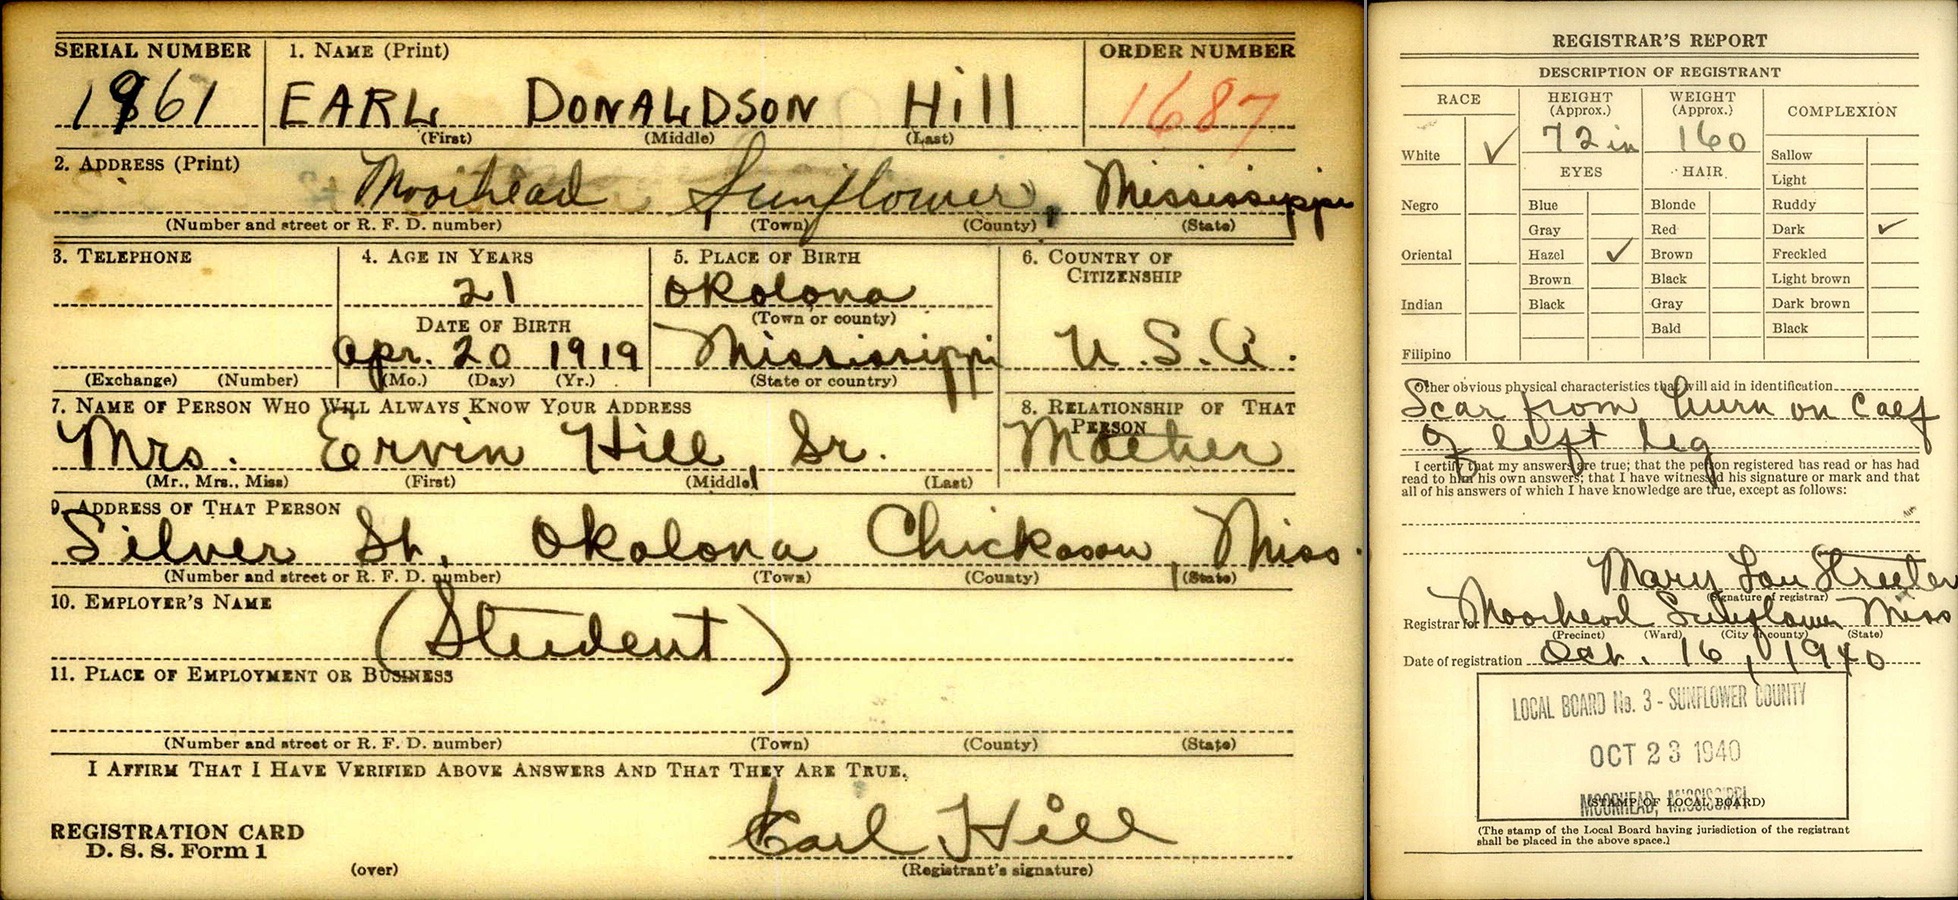 SERIAL NUMBER
1961
1. NAME (Print)
EARL DONALDSON Hill
(First) (Middle) (Last)
ORDER NUMBER
1687
2. ADDRESS (Print)
Moorhead Sunflower, Mississippi
(Number and street or R. F. D. number) (Town) (County) (State)
3. TELEPHONE
(Exchange) (Number)
4. AGE IN YEARS
21
DATE OF BIRTH
Apr. 20 1919
(Mo.) (Day) (Yr.)
5. PLACE OF BIRTH
Okolona
(Town or county)
Mississippi
(State or country)
6. COUNTRY OF
CITIZENSHIP
U.S.A.
7. NAME OF PERSON WHO WILL ALWAYS KNOW YOUR ADDRESS
Mrs. Ervin Hill, Sr.
(Mr., Mrs., Miss) (First) (Middle) (Last)
8. RELATIONSHIP OF THAT
PERSON
Mother
9. ADDRESS OF THAT PERSON
Silver St, Okolona Chickasaw, Miss.
(Number and street or R. F. D. number) (Town) (County) (State)
10. EMPLOYER'S NAME
(Student)
11. PLACE OF EMPLOYMENT OR BUSINESS
(Number and street or R. F. D. number) (Town) (County) (State)
I AFFIRM THAT I HAVE VERIFIED ABOVE ANSWERS AND THAT THEY ARE TRUE.
REGISTRATION CARD
D. S. S. Form 1
(over)
Earl Hill
(Registrant's signature)
REGISTRAR'S REPORT
DESCRIPTION OF REGISTRANT
RACE
White ✓
Negro
Oriental
Indian
Filipino
HEIGHT
(Approx.)
72 in
WEIGHT
(Approx.)
160
EYES
Blue
Gray
Hazel ✓
Brown
Black
HAIR
Blonde
Red
Brown
Black
Gray
Bald
COMPLEXION
Sallow
Light
Ruddy
Dark ✓
Freckled
Light brown
Dark brown
Black
Other obvious physical characteristics that will aid in identification
Scar from burn on calf
of left leg
I certify that my answers are true; that the person registered has read or has had
read to him his own answers; that I have witnessed his signature or mark and that
all of his answers of which I have knowledge are true, except as follows:
Mary Lou Streeter
(Signature of registrar)
Registrar for Moorhead Sunflower Miss
(Precinct) (Ward) (City or county) (State)
Date of registration Oct. 16, 1940
LOCAL BOARD No. 3 - SUNFLOWER COUNTY
OCT 23 1940
MOORHEAD, MISSISSIPPI
(STAMP OF LOCAL BOARD)
(The stamp of the Local Board having jurisdiction of the registrant
shall be placed in the above space.)